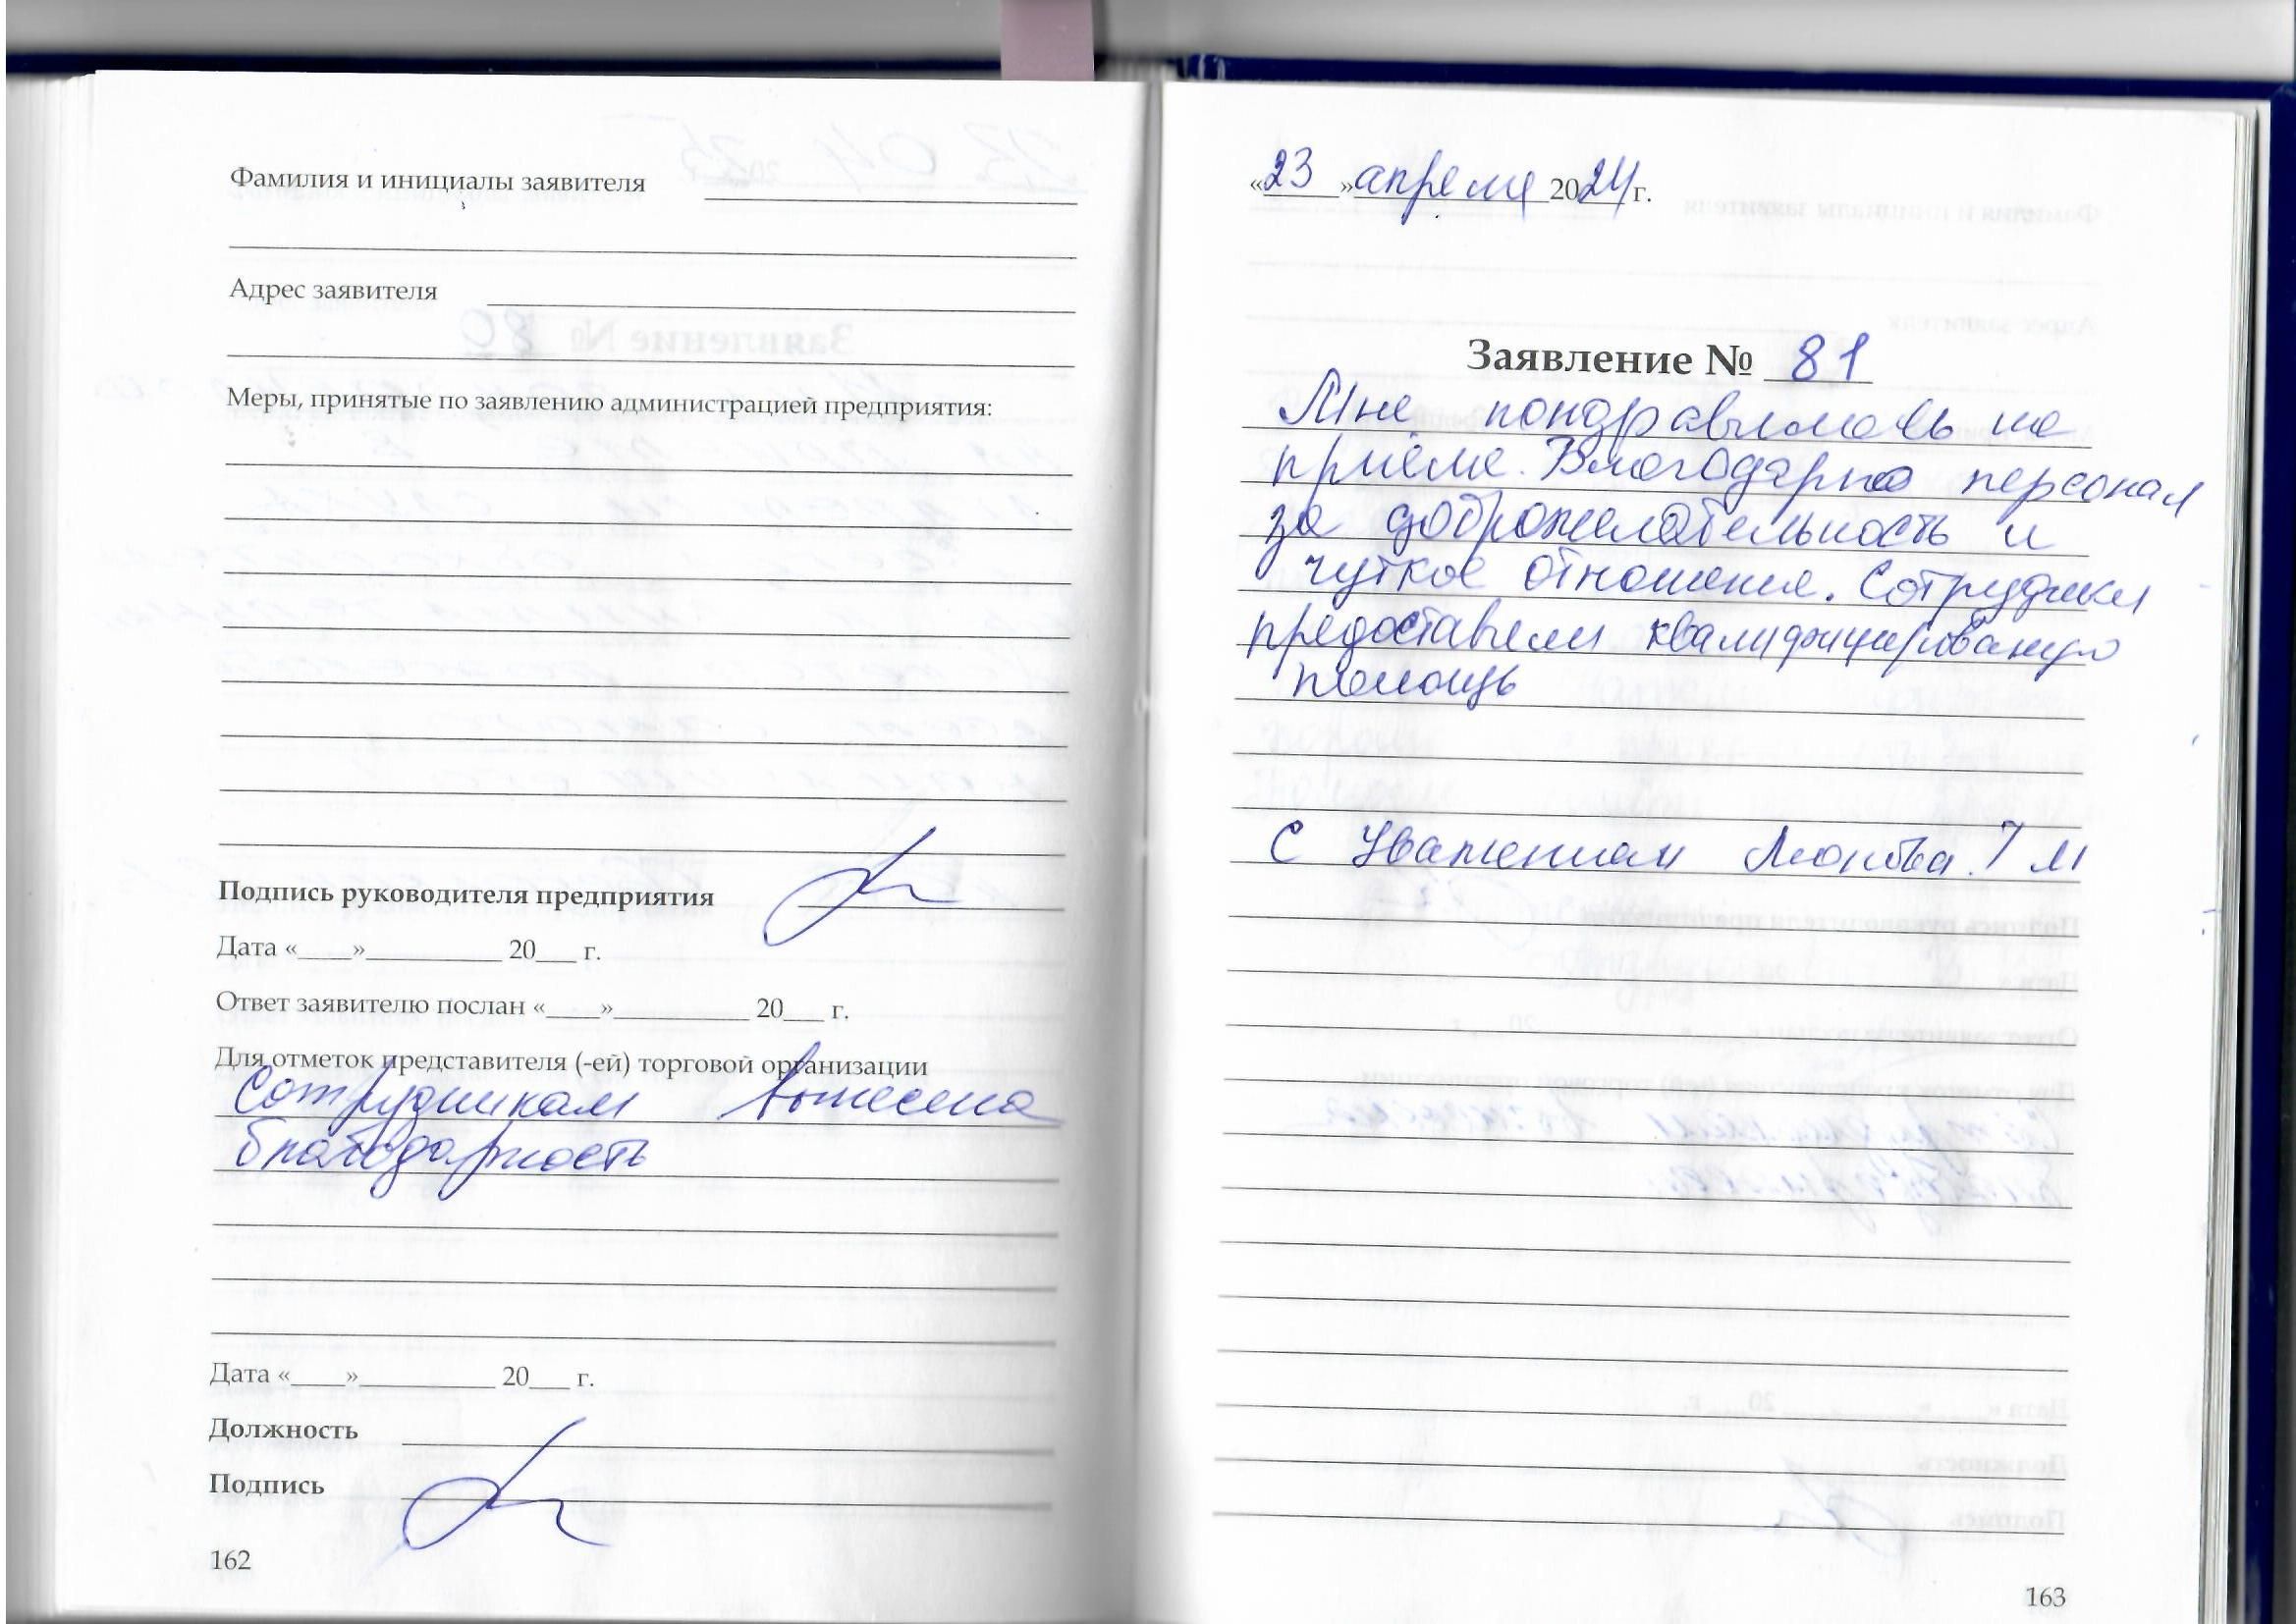 Фамилия и инициалы заявителя
Адрес заявителя
Меры, принятые по заявлению администрацией предприятия:
Подпись руководителя предприятия
Дата «____»__________ 20___ г.
Ответ заявителю послан «____»__________ 20___ г.
Для отметок представителя (-ей) торговой организации
Сотрудникам вынесена
благодарность
Дата «____»__________ 20___ г.
Должность
Подпись
162
«23» апреля 2024 г.
Заявление № 81
Мне пондравилось на
приёме. Благодарна персонал
за доброжелательность и
чуткое отношение. Сотрудики
предоставили квалифицированую
помощь
С Уважением
163